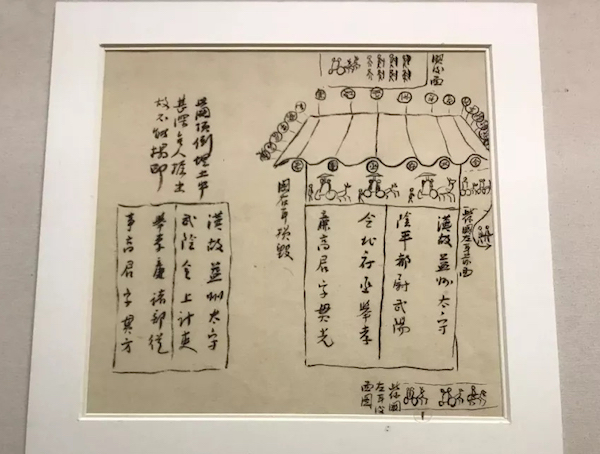 漢故益州太守
陰平都尉武陽
令北府丞舉孝
廉高君字貫光
闕右耳損毀
此闕頂倒埋土中
甚深人掘出
故不能搨印
漢故益州太守
武陰令上計吏
舉孝廉諸部從
事高君字貫方